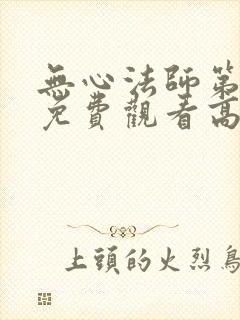 無心法師第
免費觀看高
上頭的火烈鳥